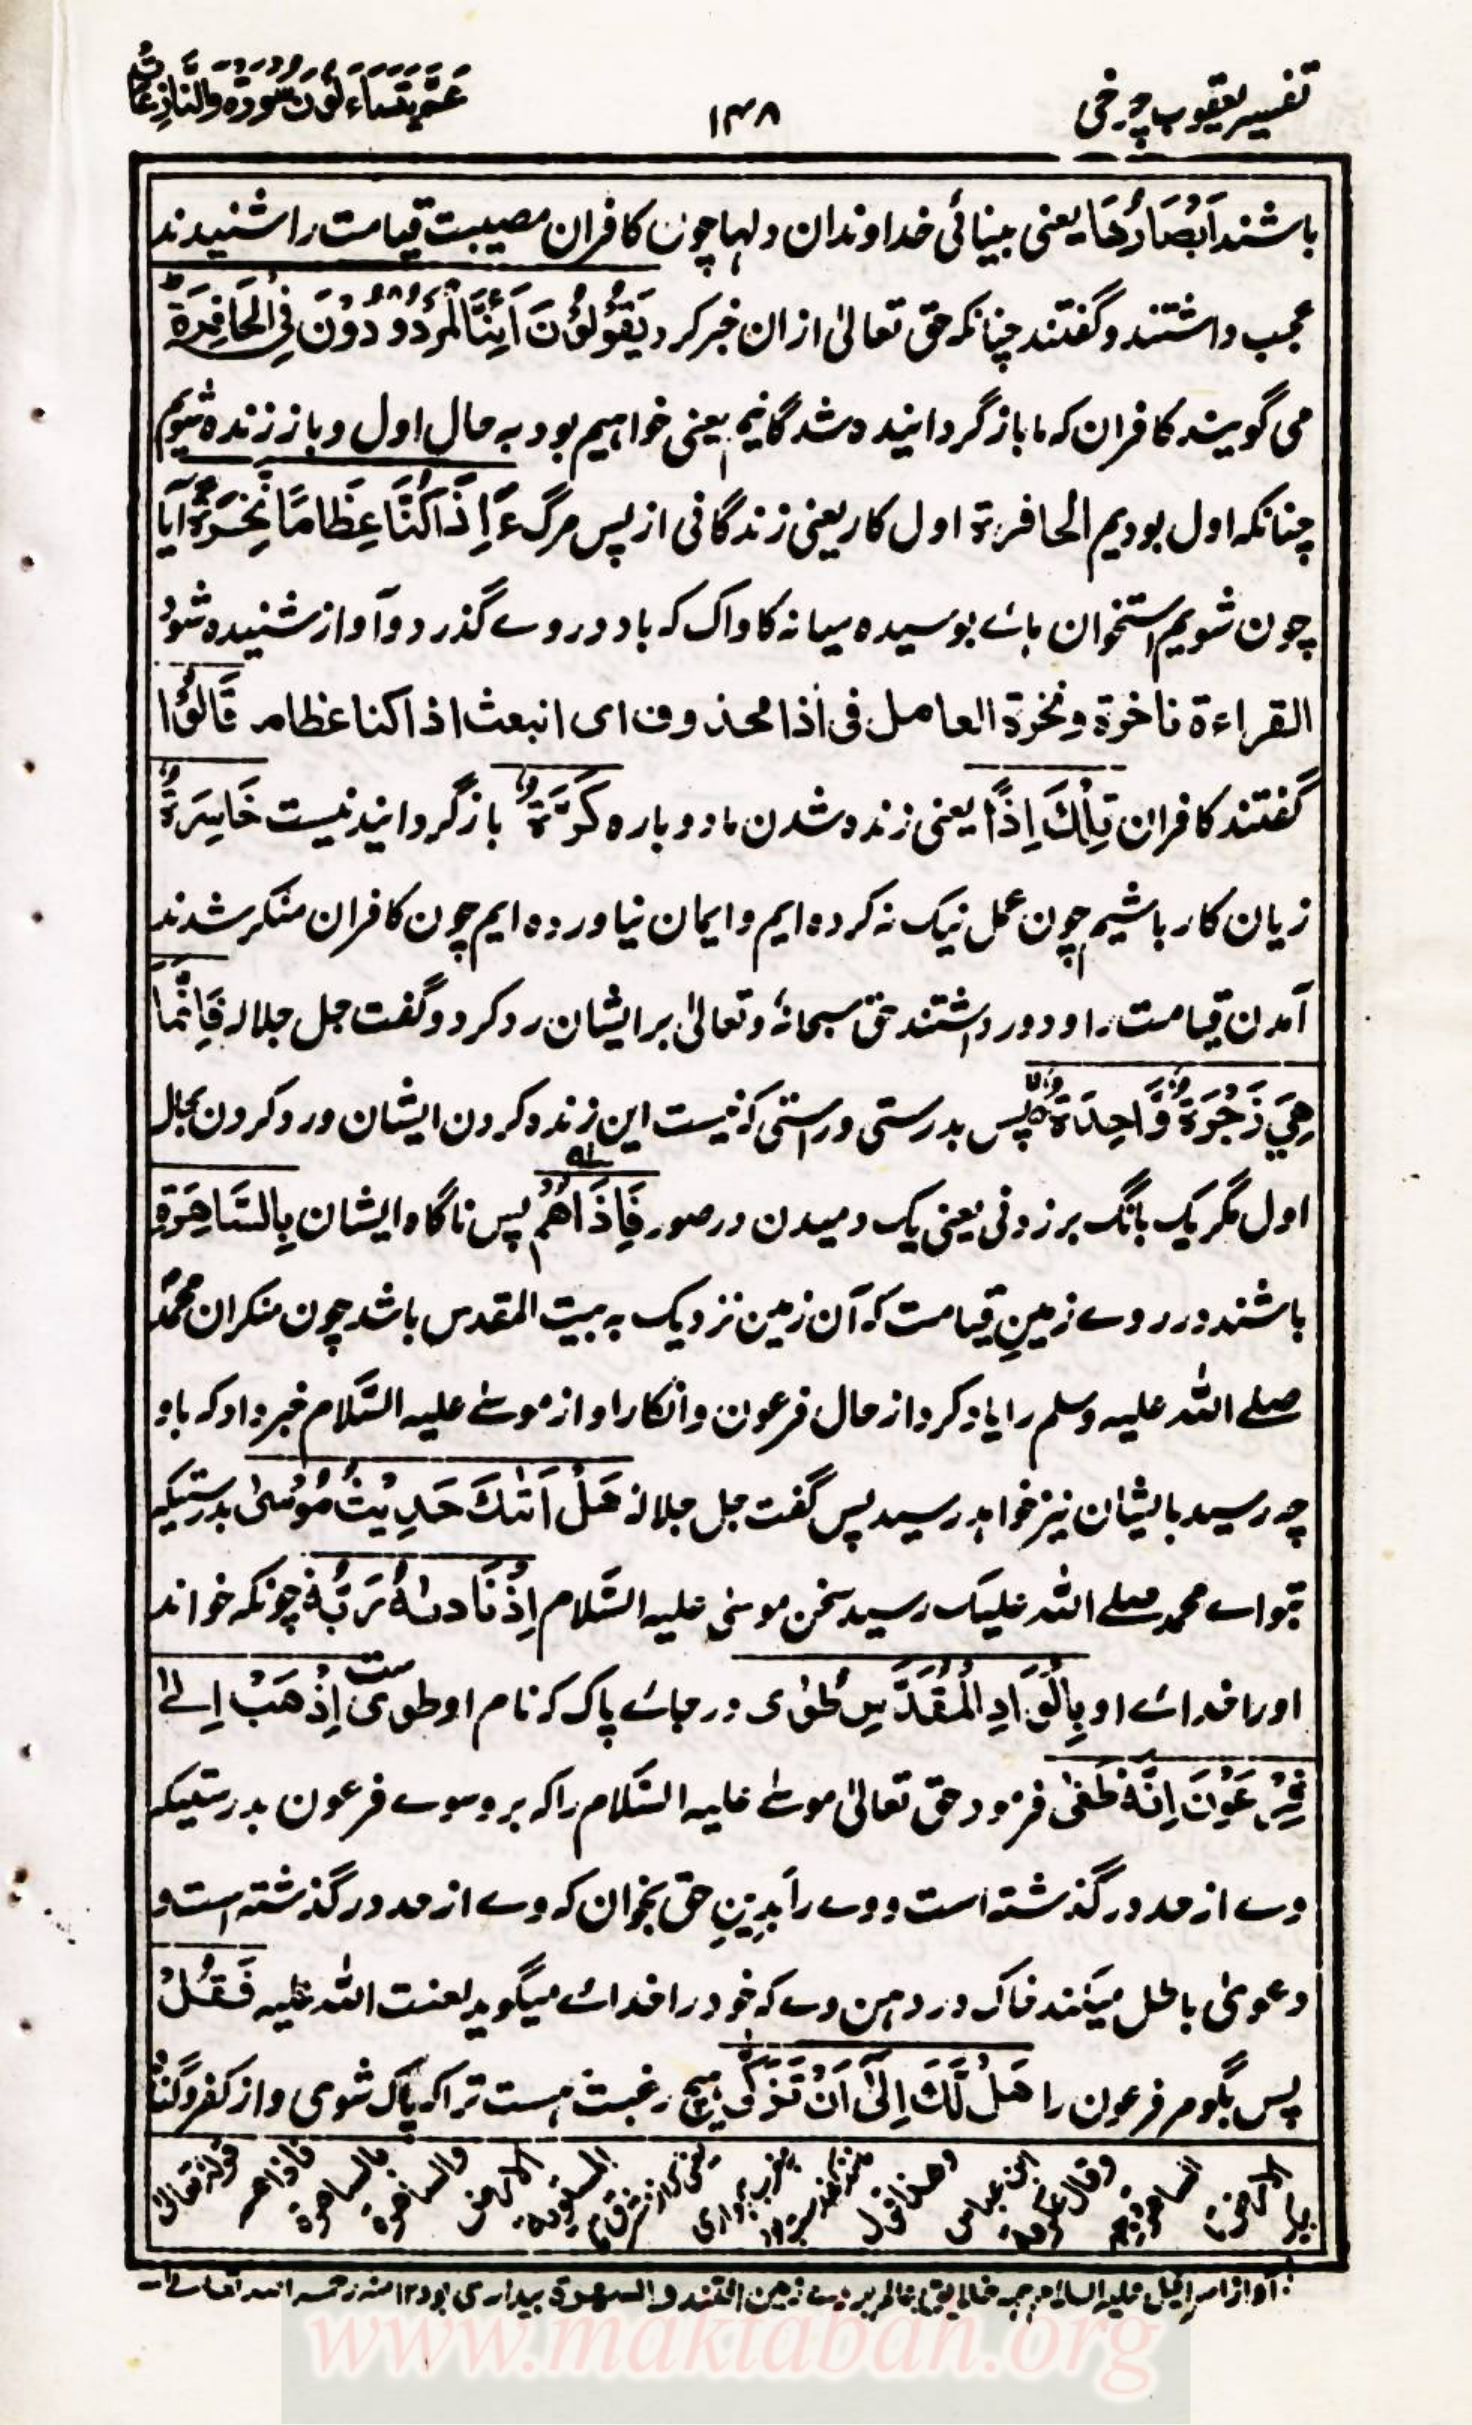 تفسیر یعقوب چرخی
۱۴۸
عَمَّ يَتَسَاءَلُونَ سُورَةُ وَالنَّازِعَاتِ
باشند اَبْصَارُهَا یعنی بینائی خداوندان دلہا چون کافران مصیبت قیامت را شنیدند
عجب داشتند و گفتند چنانکہ حق تعالیٰ ازان خبر کرد یَقُوْلُوْنَ اَئِنَّا لَمَرْدُوْدُوْنَ فِی الْحَافِرَةِ
می گویند کافران کہ ما باز گردانیده شدگانیم یعنی خواہیم بود بہ حال اول و باز زنده شویم
چنانکہ اول بودیم الحافرة اول کار یعنی زندگانی از پس مرگ ءَاِذَا كُنَّا عِظَامًا نَّخِرَةً آیا
چون شویم استخوان ہاے بوسیده میانہ کاواک کہ باد در وے گذرد و آواز شنیده شود
القراءة ناخرة و نخرة العامل فی أذا محذوف ای انبعث اذا کنا عظام قَالُوْا
گفتند کافران تِلْكَ اِذًا یعنی زنده شدن ما دوباره كَرَّةٌ باز گردانیدنیست خَاسِرَةٌ
زیان کار باشیم چون عمل نیک نہ کرده ایم و ایمان نیاورده ایم چون کافران منکر شدند
آمدن قیامت را و دور داشتند حق سبحانہٗ و تعالیٰ بر ایشان رد کرد و گفت جل جلالہ فَاِنَّمَا
هِيَ زَجْرَةٌ وَّاحِدَةٌ پس بدرستی و راستی کہ نیست این زنده کردن ایشان و رد کردن بحال
اول مگر یک بانگ برزدنی یعنی یک دمیدن در صور فَاِذَا هُمْ پس ناگاه ایشان بِالسَّاهِرَةِ
باشند در روے زمینِ قیامت کہ آن زمین نزدیک بہ بیت المقدس باشد چون منکران محمّد
صلے اللّٰہ علیہ وسلم را یاد کرد از حال فرعون و انکار او از موسےٰ علیہ السَّلام خبر داد کہ باو
چہ رسید بایشان نیز خواہد رسید پس گفت جل جلالہٗ هَلْ اَتٰىكَ حَدِيْثُ مُوْسٰى بدرستیکہ
بتو اے محمد صلے اللّٰہ علیک رسید سخن موسٰی علیہ السَّلام اِذْ نَادٰىهُ رَبُّهٗ چونکہ خواند
او را خداے او بِالْوَادِ الْمُقَدَّسِ طُوًى در جاے پاک کہ نام او طوی ست اِذْهَبْ اِلٰى
فِرْعَوْنَ اِنَّهٗ طَغٰى فرمود حق تعالیٰ موسےٰ علیہ السَّلام را کہ برو سوے فرعون بدرستیکہ
وے از حد در گذشتہ است و وے را بدینِ حق بخوان کہ وے از حد در گذشتہ است و
دعویٰ باطل میکند خاک در دہن وے کہ خود را خداے میگوید لعنت اللّٰہ علیہ فَقُلْ
پس بگو مر فرعون را هَلْ لَّكَ اِلٰٓى اَنْ تَزَكّٰى ہیچ رغبت ہست ترا کہ پاک شوی و از کفر و گناہ
قولہ تعالیٰ فاذاہم بالساہرة والساہرة الارض
www.maktabah.org